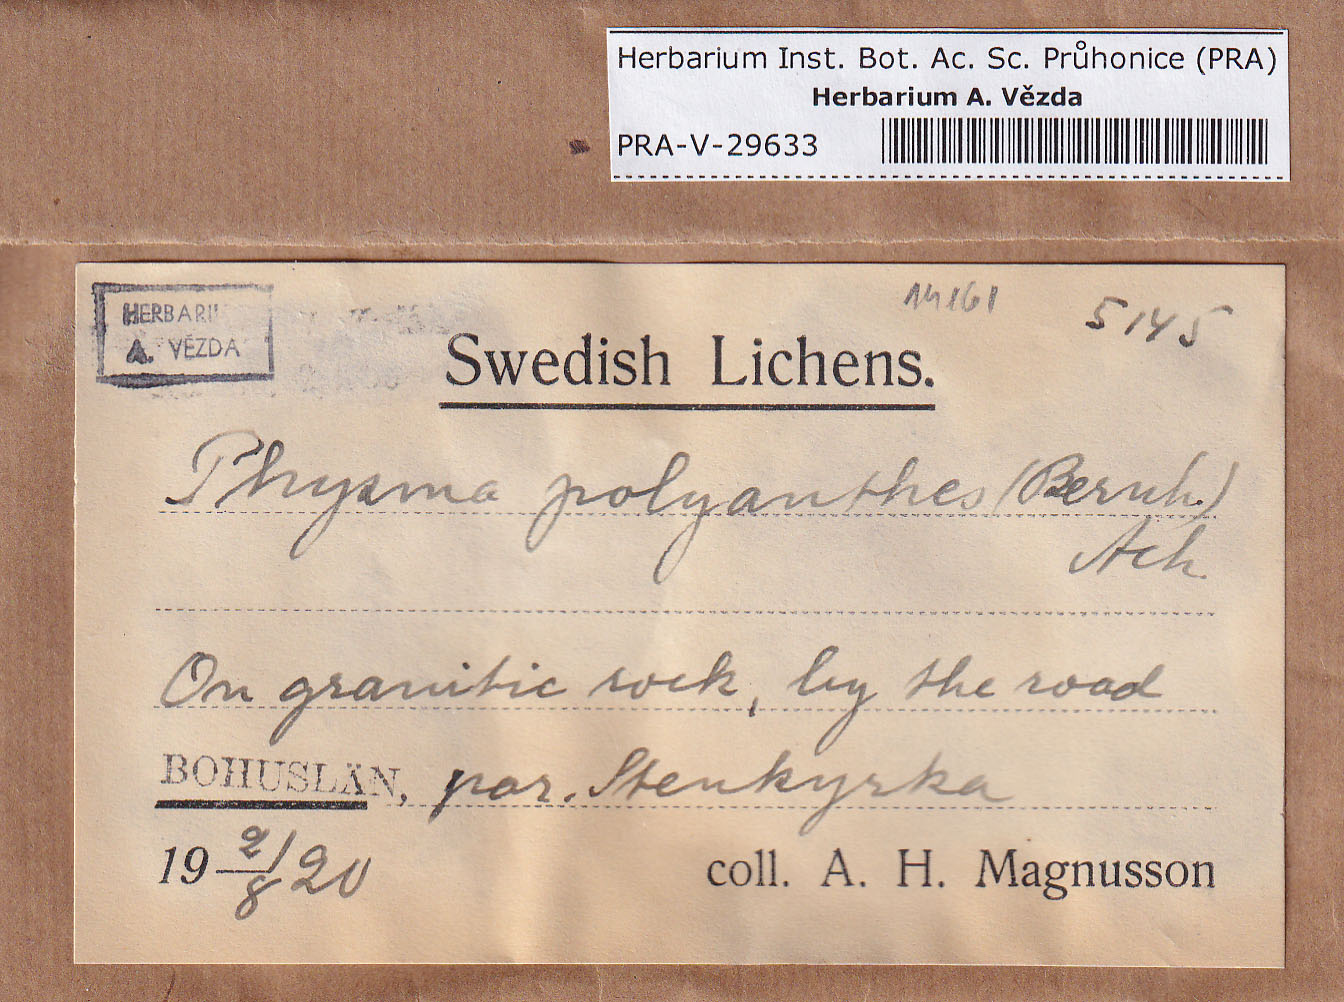 Herbarium Inst. Bot. Ac. Sc. Průhonice (PRA)
Herbarium A. Vězda
PRA-V-29633
HERBARIU
A. VĚZDA
14161
5145
Swedish Lichens.
Physma polyanthes (Bernh.)
Ach.
On granitic rock, by the road
BOHUSLÄN, par. Stenkyrka
19 2/8 20
coll. A. H. Magnusson